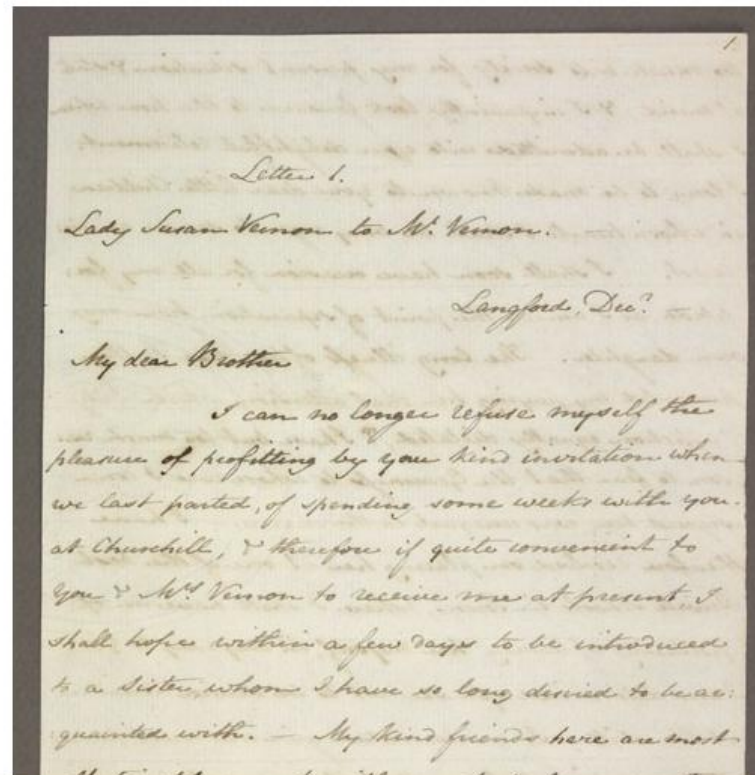 1.
Letter 1.
Lady Susan Vernon to Mr. Vernon.
Langford, Decr.
My dear Brother
I can no longer refuse myself the
pleasure of profitting by your kind invitation when
we last parted, of spending some weeks with you
at Churchill, & therefore if quite convenient to
you & Mrs Vernon to receive me at present I
shall hope within a few days to be introduced
to a Sister whom I have so long desired to be ac:
quainted with. — My kind friends here are most